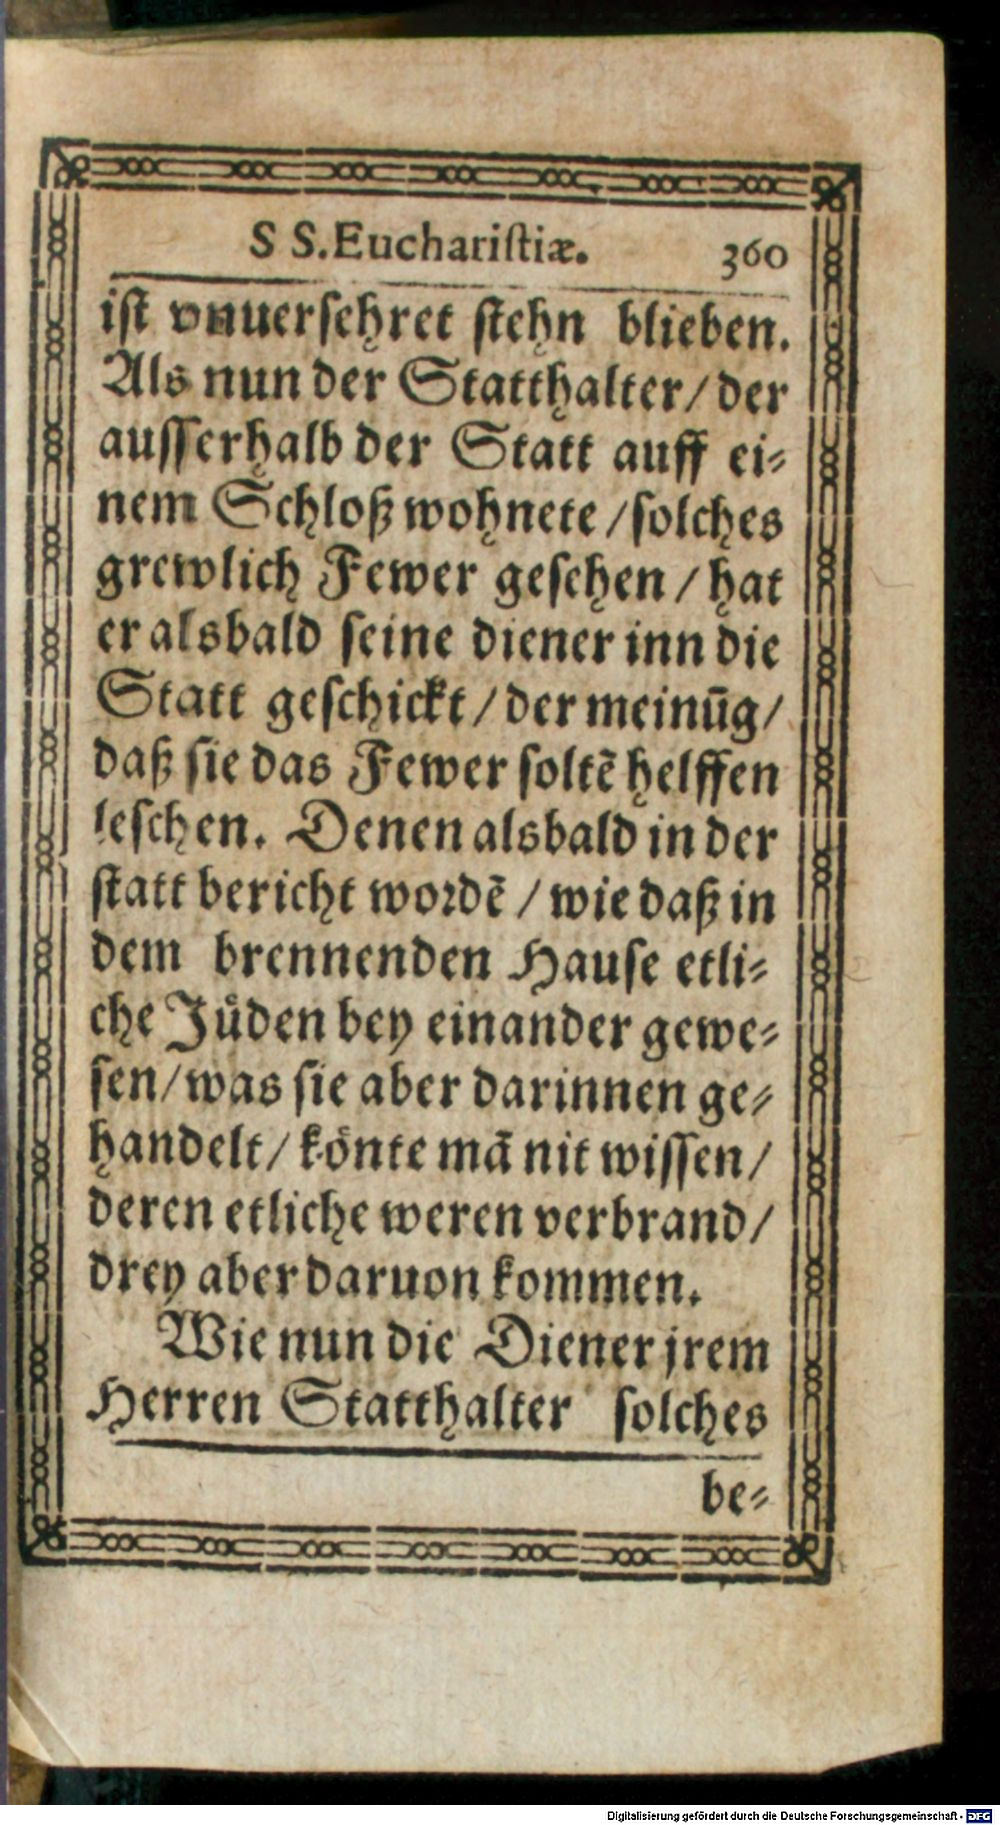 S S. Euchariſtiæ. 360
iſt vnuerſehret ſtehn blieben.
Als nun der Statthalter/ der
auſſerhalb der Statt auff ei⸗
nem Schloß wohnete /ſolches
grewlich Fewer geſehen / hat
er alsbald ſeine diener inn die
Statt geſchickt / der meinūg/
daß ſie das Fewer ſoltē helffen
leſchen. Denen alsbald in der
ſtatt bericht wordē / wie daß in
dem brennenden Hauſe etli⸗
che Jůden bey einander gewe⸗
ſen/was ſie aber darinnen ge⸗
handelt/ koͤnte mā nit wiſſen/
deren etliche weren verbrand/
drey aber daruon kommen.
Wie nun die Diener jrem
Herren Statthalter ſolches
be⸗
Digitalisierung gefördert durch die Deutsche Forschungsgemeinschaft - DFG